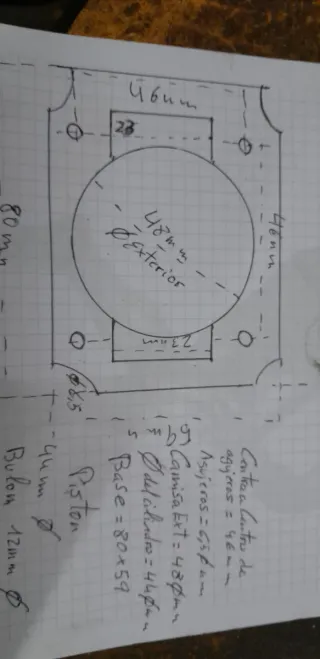 46mm
23
46mm
48mm
Ø Exterior
23mm
80mm
Ø 6,5
Centro a Centro de
agujeros = 46mm
Agujeros = 6,5 Ømm
Camisa Ext = 48Ømm
Ø del cilindro = 44Ømm
Base = 80x59
Piston
44m Ø
Bulon 12mm Ø